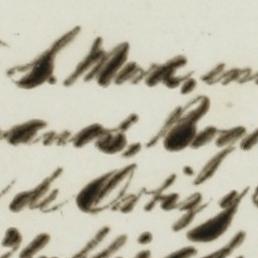 S. Mora, en
anos, Rog
de Ortiz y